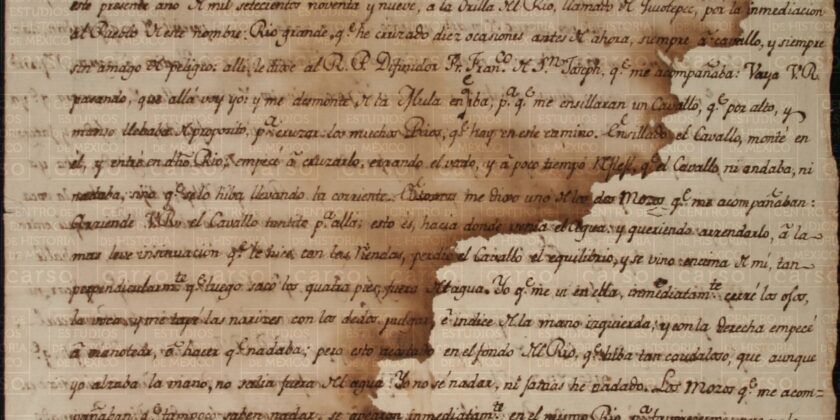 este presente año de mil setecientos noventa y nueve, a la Orilla del Rio, llamado de por la inmediacion
al Pueblo de este nombre: Rio grande, q.e he cruzado diez ocasiones antes de ahora, siempre à cavallo, y siempre
sin amago de peligro: alli le dixe al R. P. Difinidor Fr. Fran.co de S.n Joseph, q.e me acompañaba: Vaya V.R.
pasando, que allá voy yo: y me desmonté de la Mula en q.e iba; p.a q.e me ensillaran un Cavallo, q.e por alto, y
manso llebaba de proposito, p.a cruzar los muchos Rios, q.e hay en este camino. Ensillado el Cavallo, monté en
él, y entré en dho Rio; empecé à cruzarlo, el vado, y à poco tiempo q.e el Cavallo, ni andaba, ni
nadaba, sino q.e solo hiba llevando la corriente. Entonces me dixo uno de los dos Mozos q.e me acompañaban:
V.R. el Cavallo tantito p.a allá; esto es, hacia donde venia el Agua; y queriendo arrendarlo, à la
mas leve insinuacion q.e le hice, con las riendas, perdió el Cavallo el equilibrio, y se vino encima de mi, tan
perpendicularm.te q.e luego sacó los quatro pies fuera del agua. Yo q.e me vi en ella, inmediatam.te cerré los ojos,
la voca, y me tapé las narizes con los dedos, pulgar, è indice de la mano izquierda; y con la derecha empecé
à manotear, à hacer q.e nadaba; pero esto en el fondo del Rio, q.e hiba tan caudaloso, que aunque
yo alzaba la mano, no salia fuera del agua. Yo no sé nadar, ni jamas he nadado. Los Mozos q.e me acom-
pañaban, q.e tampoco saben nadar, se inmediatam.te en el mismo Rio,